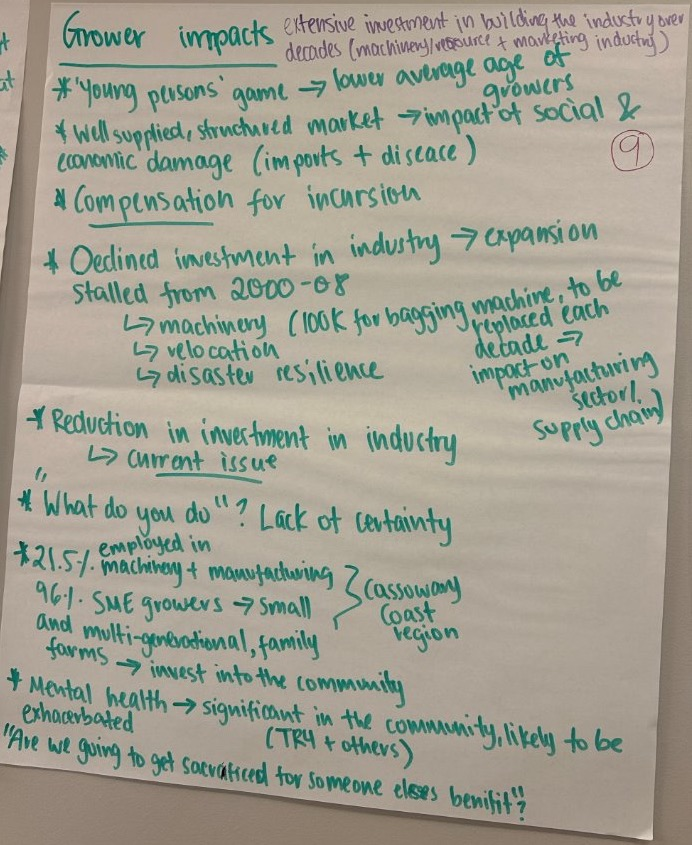 Grower impacts extensive investment in building the industry over
decades (machinery/resource + marketing industry)
* 'Young persons' game → lower average age of
growers
* Well supplied, structured market → impact of social &
economic damage (imports + disease)
9
* Compensation for incursion
* Declined investment in industry → expansion
stalled from 2000-08
↳ machinery (100K for bagging machine, to be
replaced each
↳ relocation
decade →
↳ disaster resilience
impact on
manufacturing
sector/.
supply chain)
* Reduction in investment in industry
↳ current issue
* "What do you do"? Lack of certainty
* 21.5% employed in
machinery + manufacturing
96% SME growers → small
and multi-generational, family
farms → invest into the community
} Cassowary
Coast
region
* Mental health → significant in the community, likely to be
exhacerbated (TR4 + others)
"Are we going to get sacraficed for someone elses benifit"?